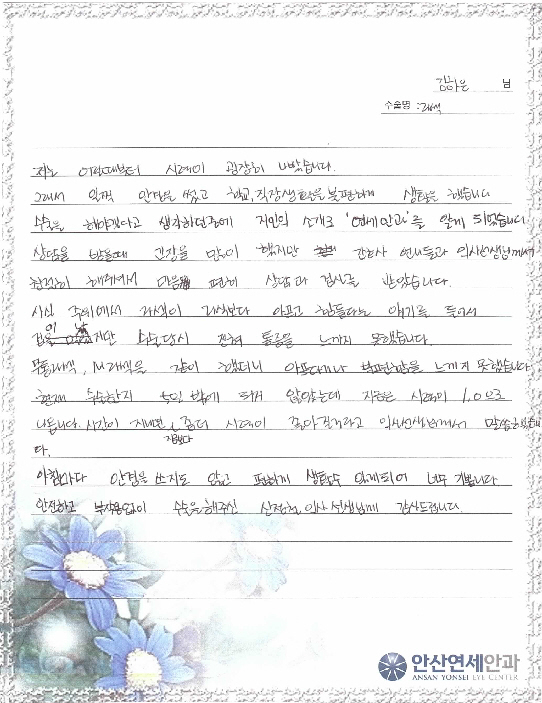 김하은 님
수술명 : 라섹
저는 어렸을때부터 시력이 굉장히 나빴습니다.
그래서 일찍 안경을 썼고 학교, 직장생활을 불편하게 생활을 했습니다
수술을 해야겠다고 생각하던중에 지인의 소개로 '연세안과'를 알게 되었습니다
상담을 받을때 긴장을 많이 했지만 간호사 언니들과 의사선생님께서
친절히 해주셔서 마음 편히 상담과 검사를 받았습니다.
사실 주위에서 라섹이 라식보다 아프고 힘들다는 얘기를 들어서
겁을 지만 수술당시 전혀 통증을 느끼지 못했습니다.
무통라섹, M라섹을 같이 했더니 아프다거나 불편함을 느끼지 못했습니다
현재 수술한지 밖에 되지 않았는데 지금은 시력이 1.0으로
나옵니다. 시간이 지나면 좀더 시력이 좋아질거라고 의사선생님께서 말씀하셨습니
다.
아침마다 안경을 쓰지도 않고 편하게 생활할수 있게되어 너무 기쁩니다
안전하고 부작용없이 수술을 해주신 의사 선생님께 감사드립니다.
안산연세안과
ANSAN YONSEI EYE CENTER